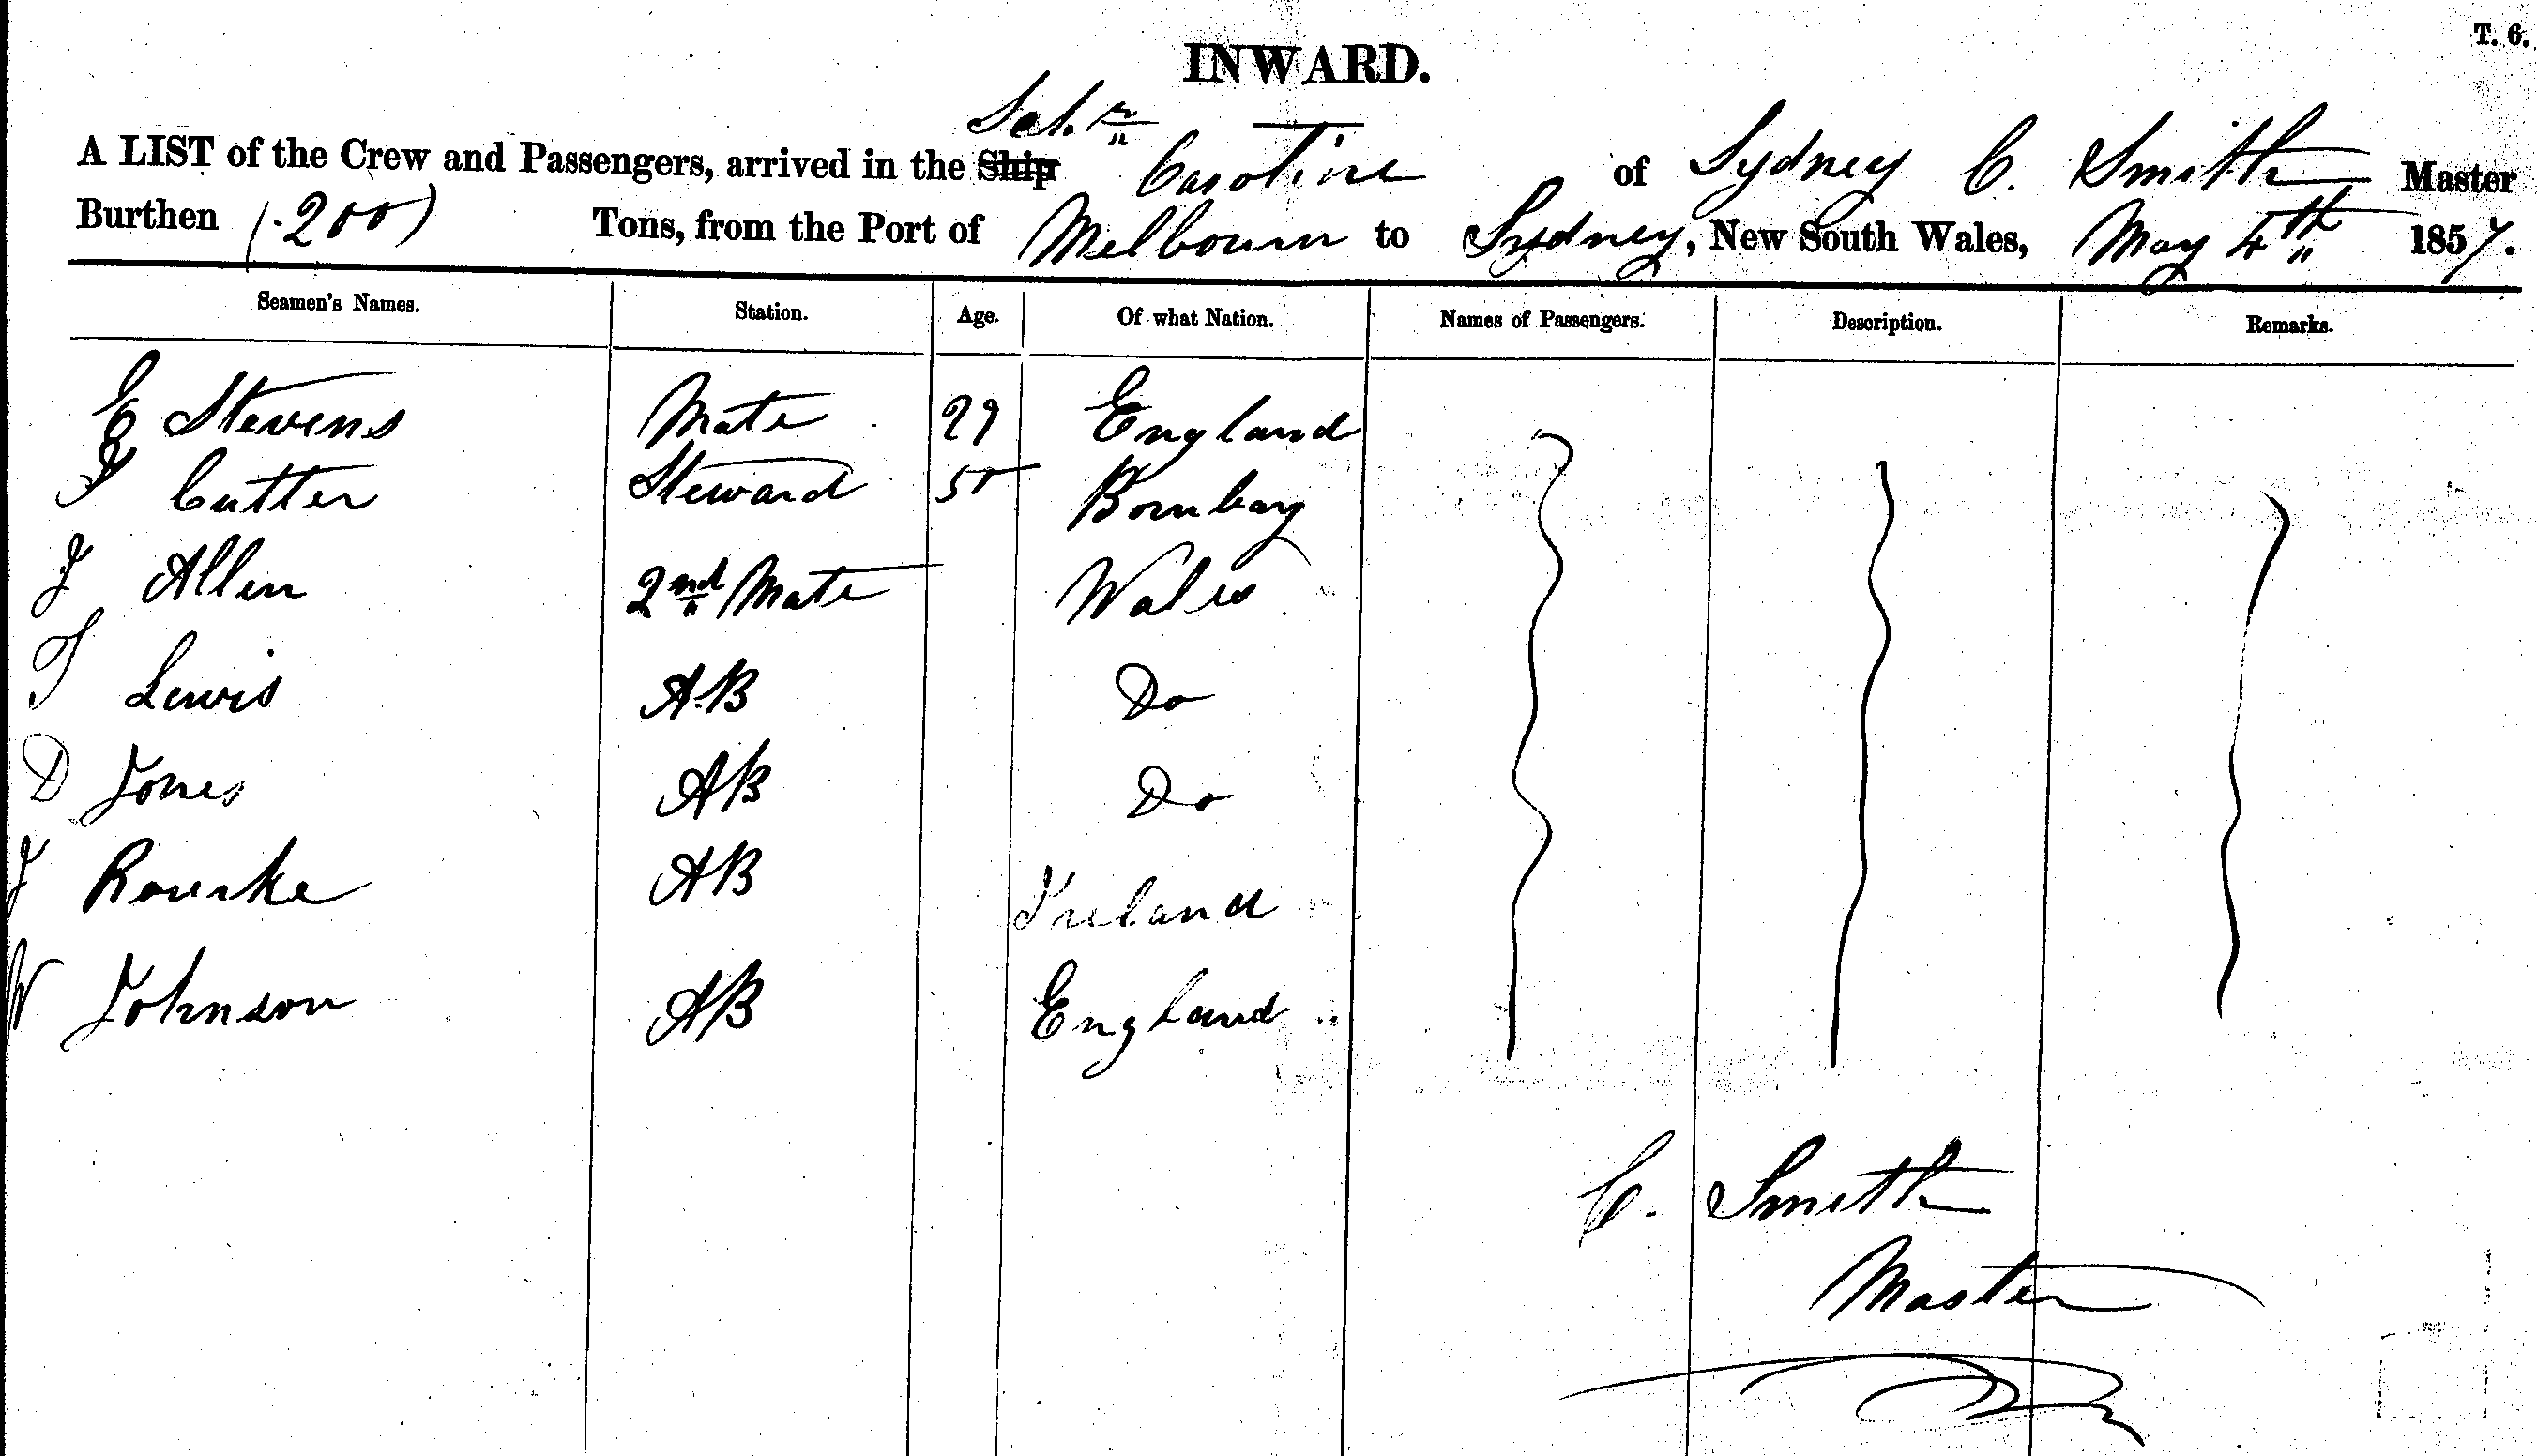 T. 6.
INWARD.
Sch.r
A LIST of the Crew and Passengers, arrived in the Ship Caroline of Sydney C. Smith Master
Burthen (200) Tons, from the Port of Melbourn to Sydney, New South Wales, May 4th 1857.
Seamen's Names. Station. Age. Of what Nation. Names of Passengers. Description. Remarks.
E Stevens Mate 29 England
Cutter Steward 50 Bombay
J Allen 2nd Mate Wales
T Lewis A.B Do
D Jones AB Do
J Rourke AB Ireland
W Johnson AB England
C. Smith
Master